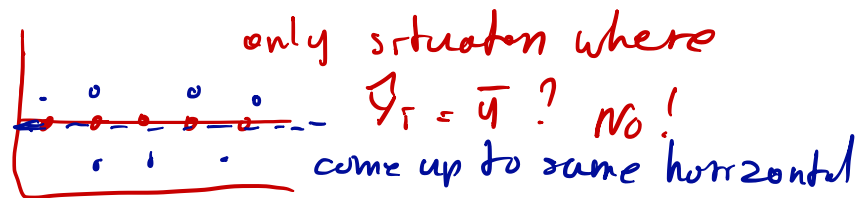 only situaton where
ŷᵢ = ȳ ? No!
come up to same horizontal